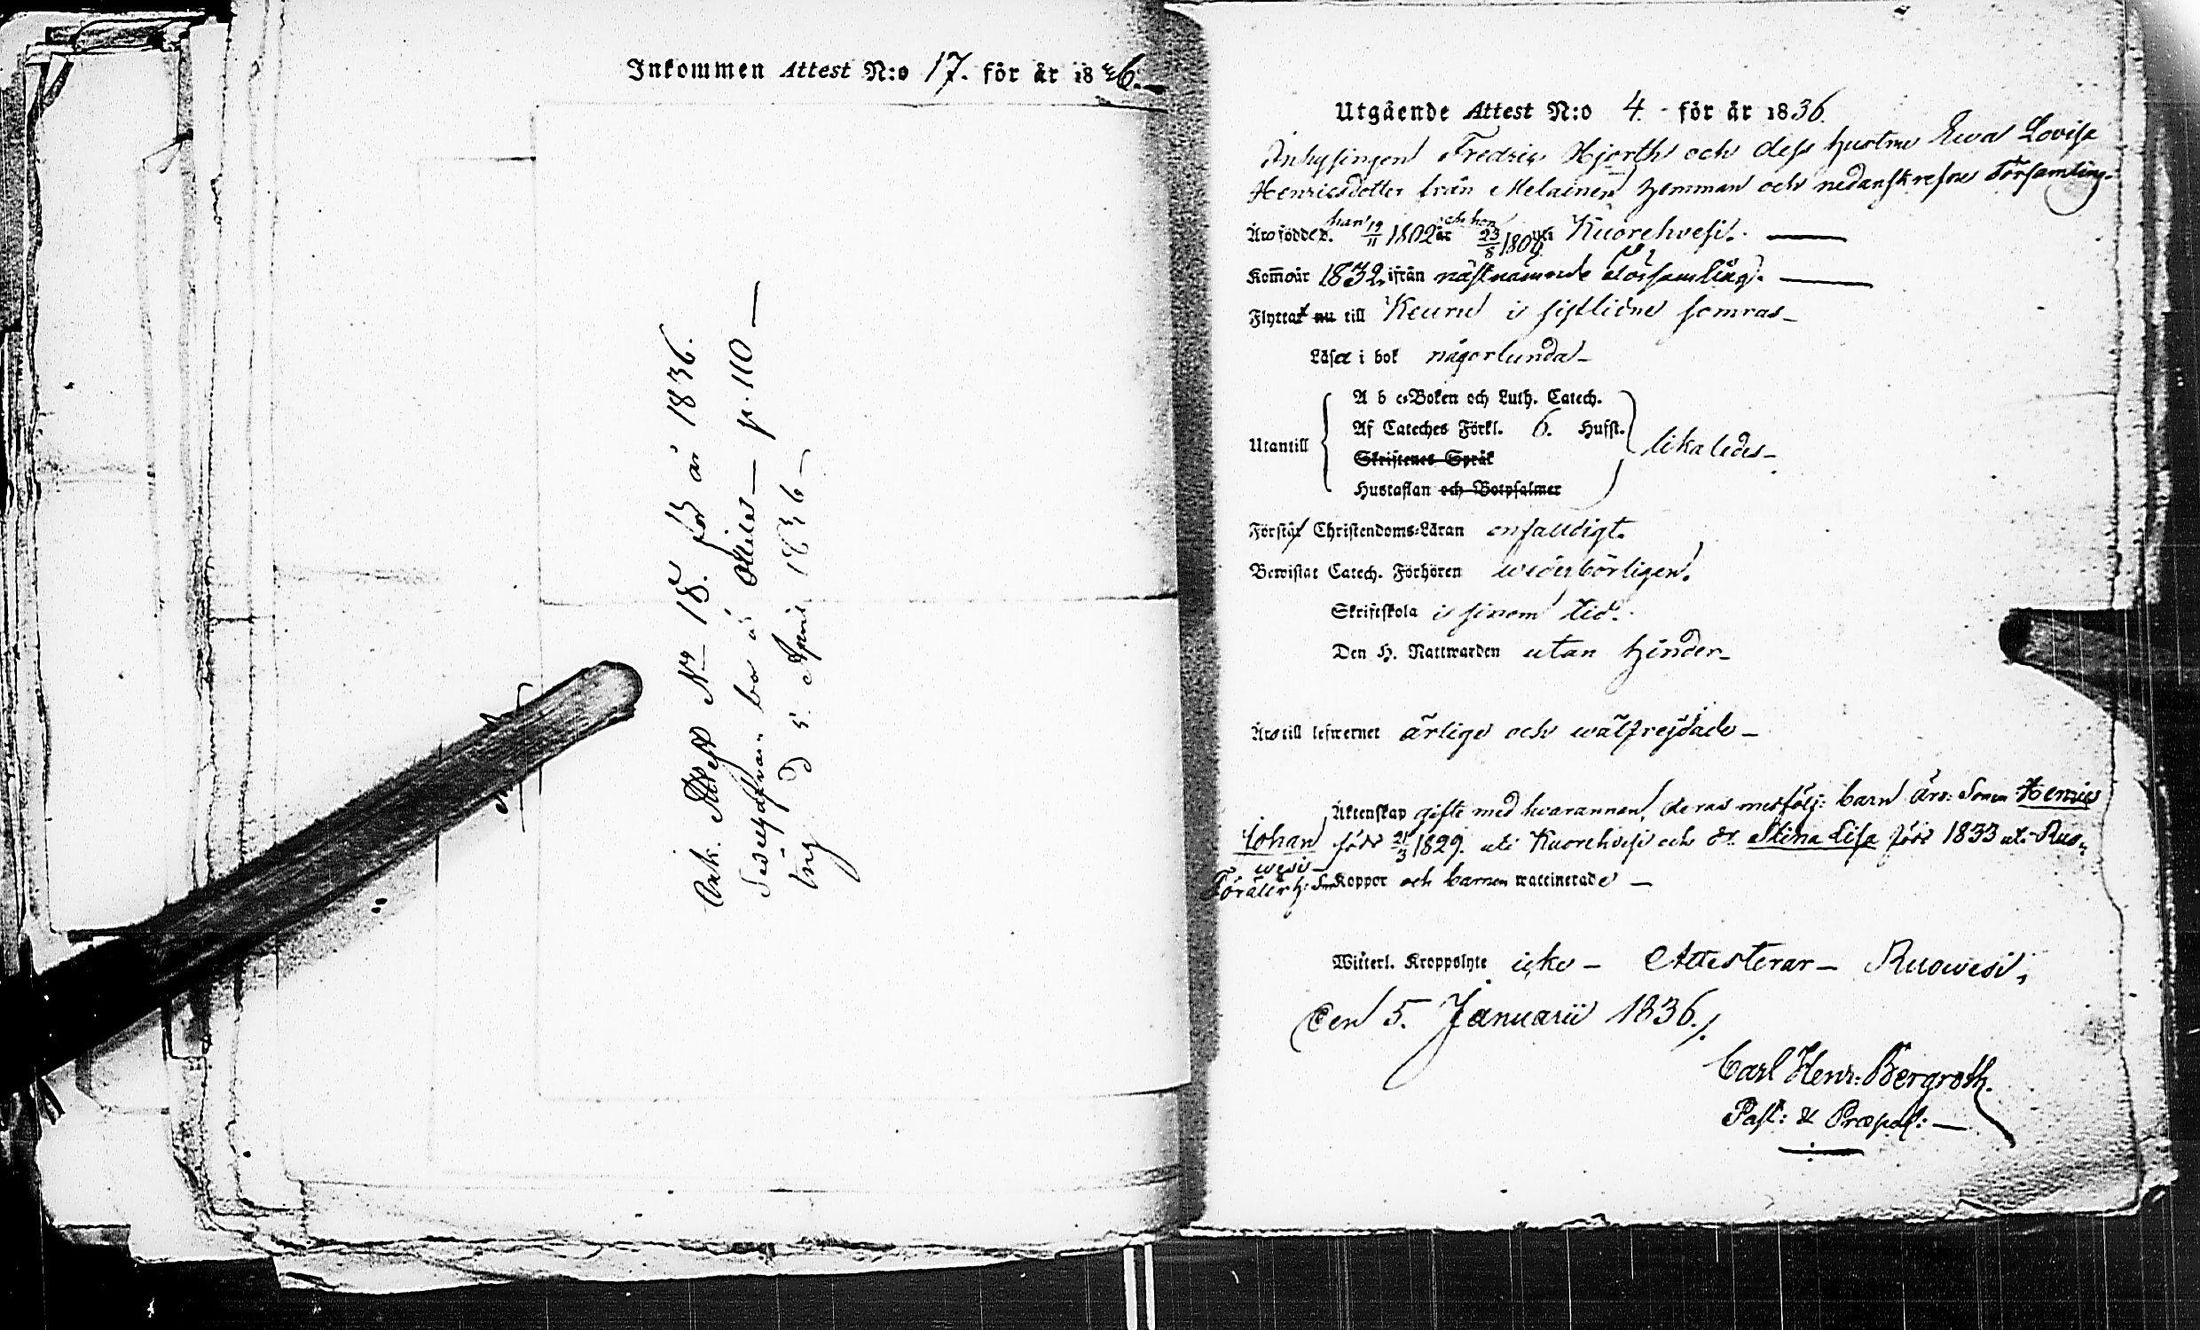 Inkommen Attest N:o 17. för år 1836.
Ank. Attest No 18. för år 1836.
bo å p. 110 —
d 5. April 1836 —
Utgående Attest N:o 4. för år 1836.
Inhysingen Fredric Hjorth och dess hustru Ewa Lovisa
Henricsdotter från Melainen hemman och nedanskrefne Församling.
Äro födde, han 19/11 1802 och hon 23/8 1809 uti Kuorehvesi. —
Kom̄o år 1832 ifrån nästnämnde Församling. —
Flyttat nu till Keuru i sistledne somras —
Läsa i bok någorlunda —
A b c-Boken och Luth. Catech.
Af Cateches Förkl. 6. Husst.
Utantill likaledes —
Skriftenes Språk
Hustaflan och Botpsalmer
Förstå Christendoms-Läran enfaldigt.
Bewistat Catech. Förhören wederbörligen.
Skriftskola i sinom tid.
Den H. Nattwarden utan hinder —
Äro till lefwernet ärlige och wälfrejdade —
Äktenskap gifte med hwarannan, deras medfölj: barn äro: Sonen Henric
Johan född 21/3 1829 uti Kuorehvesi och dr. Stina Lisa född 1833 uti Ruo-
wesi —
Föräldr. h: Koppor och barnen waccinerade —
Witterl. Kroppslyte icke — Attesterar — Ruowesi,
den 5. Januarii 1836./.
Carl Henr: Bergroth.
Past: & Præpos: —